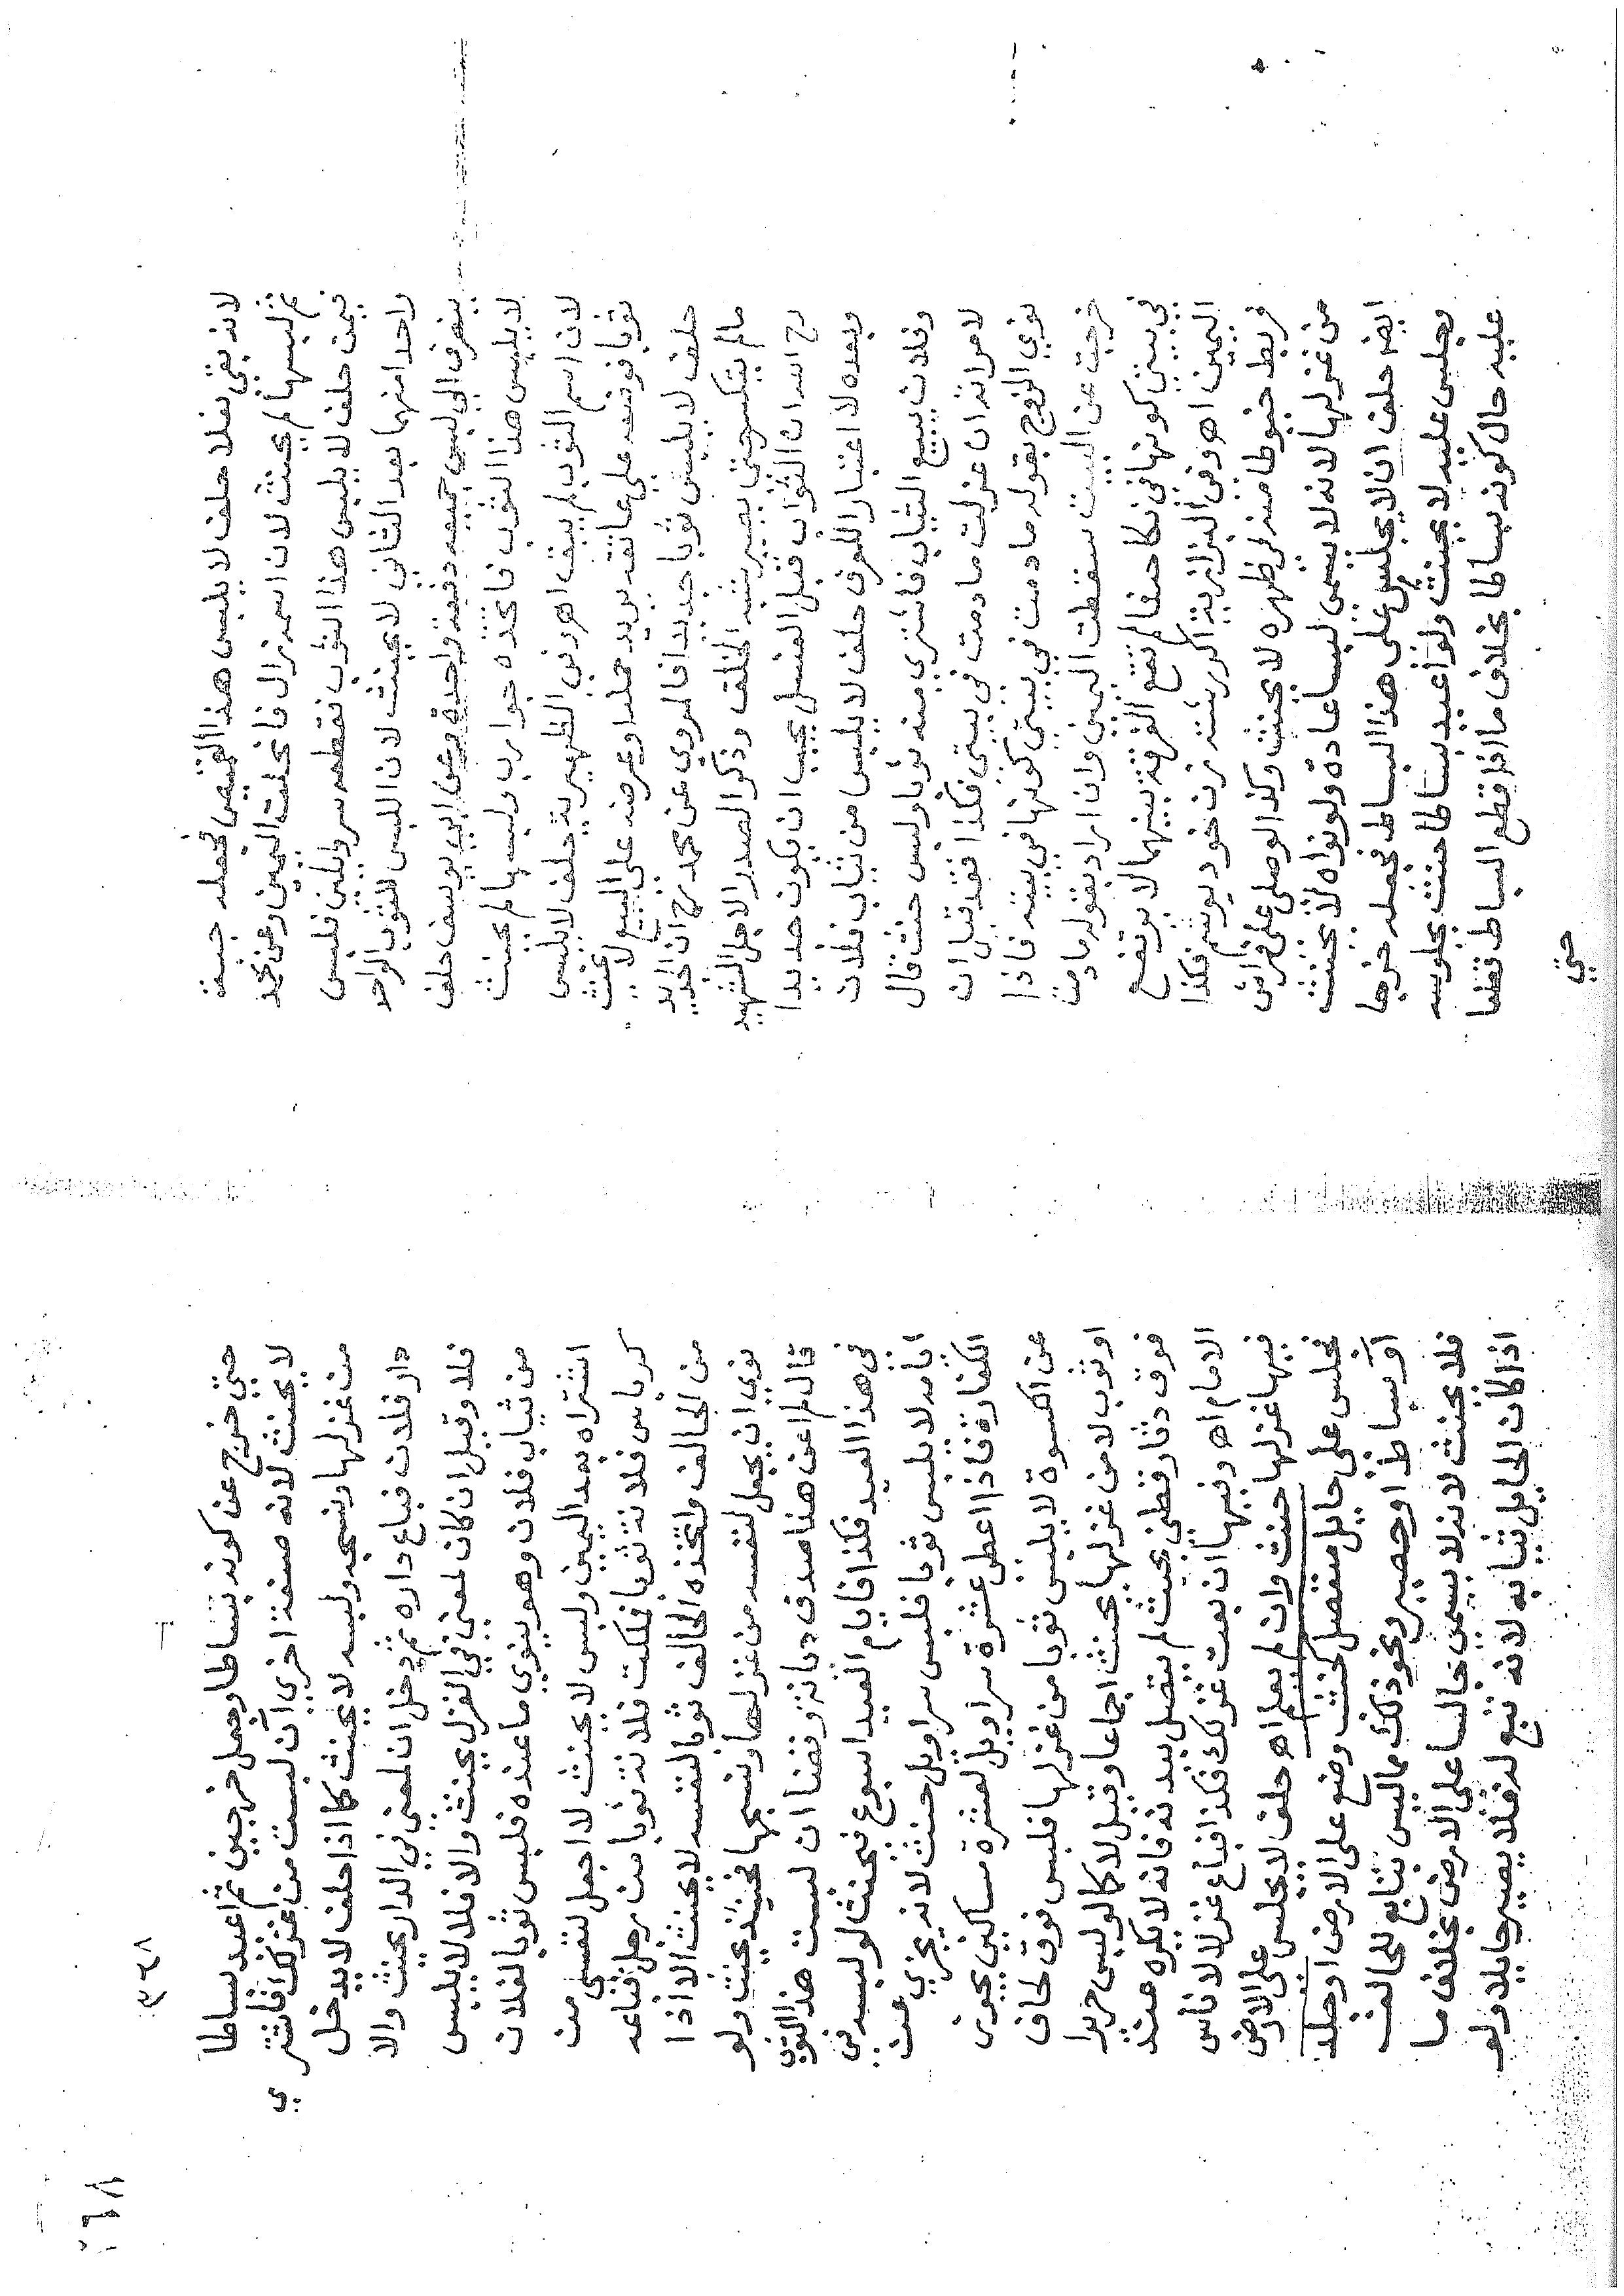 لانه بقي نفلا حلف لا يلبس هذا القميص فجعله جبة
ثم لبسها لم يحنث لان اسمه زال فانحلت اليمين وعن محمد
فيمن حلف لا يلبس هذا الثوب فقطعه سروايلين فلبس
واحدا منهما بعد الثاني لا يحنث لان اللبس للثوب الواحد
ينصرف الي لبس جميعه دفعة واحدة وعن ابي يوسف حلف
لا يلبس هذا الثوب فاتخذه جوارب ولبسها لم يحنث
لان اسم الثوب لم يبق اهـ وفي الظهيرية حلف لا يلبس
ثوبا فوضعه علي عاتقه يريد حمله او عرضه علي البيع لا يحنث
حلف لا يلبس ثوبا جديدا فالمروي عن محمد رح ان الجديد
مالم ينكسر حتي يصير شبه الخلق وذكر الصدر الاجل الشهيد
رح الله ان الثواب قبل الغسل يجب ان يكون جديدا
وبعده لا اعتبار للعرف حلف لا يلبس من ثياب فلان
وفلان يبيع الثياب فاشتري منه ثوبا ولبس حنث قال
لامراته ان غزلت ما دمت في بيتي فكذا فقد قيل ان
نوي الزوج بقوله ما دمت في بيتي كونها في بيته فاذا
خرجت عن البيت سقطت اليمين وان اراد بقوله ما دمت
في بيتي كونها في نكاحه فما لم تقع الفرقة بينهما لا يرتفع
اليمين اهـ وفي البزازية اكر رشته زن خود پوشم فكذا
فربط خيوطا منه لي ظهره لا يحنث وكذا لو صلي علي فراش
من غزلها لانه لا يسمي لبسا عادة ولو نواه لا يحنث
ايضا حلف ان لا يجلس علي هذا البساط فجعله خرجا
وجلس عليه لا يحنث ولو اعيد بساطا حنث بجلوسه
عليه حال كونه بساطا بخلاف ما اذا قطع البساط قطعا
حتي
٣٦٨
حتي خرج عن كونه بساطا وجعل خرجين ثم اعيد بساطا
لا يحنث لانه صنعة اخري ان لبست من غزلك فاشتري
من غزلها ونسجه ولبسه لا يحنث كما اذا حلف لا يدخل
دار فلان فباع داره ثم دخل ان لمعني في الدار يحنث والا
فلا وقيل ان كان لمعني في الغزل يحنث والا فلا لا يلبس
من ثياب فلان وهو ينوي ما عنده فلبس ثوبا لفلان
اشتراه بعد اليمين ولبس لا يحنث لا اجعل لنفسي من
كرباس فلانة ثوبا فملكت فلانة ثوبا من رجل فباعه
من الحالف واتخذه الحالف ثوبا لنفسه لا يحنث الا اذا
نوي ان يجعل لنفسه من غزلها ونسجها فحينئذ يحنث ولو
قال لم اعن هذا صدق ديانة وقضا ان لبست هذا الثوب
في هذا العيد فكذا فايام العيد اسبوع فيحنث لو لبسه في
انا مد لا يلبس ثوبا فلبس سراويل حنث لانه يجزي عن
الكفارة فاذا اعطي عشرة سراويل لعشرة مساكين يجوز
عن الكسوة لا يلبس ثوبا من غزلها فلبس فوق لحاف
او ثوب لا من غزلها يحنث اجماعا وقيل لا كما لو لبس حريرا
فوق دثار قطني بحيث لم يتصل ببدنه فانه لا يكره عند
الامام اهـ وفيها ان بعت غزلك فكذا فباع غزلا لاناس
فيها غزلها حنث وان لم يعلم اهـ حلف لا يجلس علي الارض
فجلس علي حايل منفصل كخشب وضع علي الارض او جلد
او بساط او حصير ونحو ذلك مما ليس بتابع للحالف
فلا يحنث لانه لا يسمي جالسا علي الارض بخلاف ما
اذا كان الحايل ثيابه لانه تبع له فلا يصير حايلا ولو